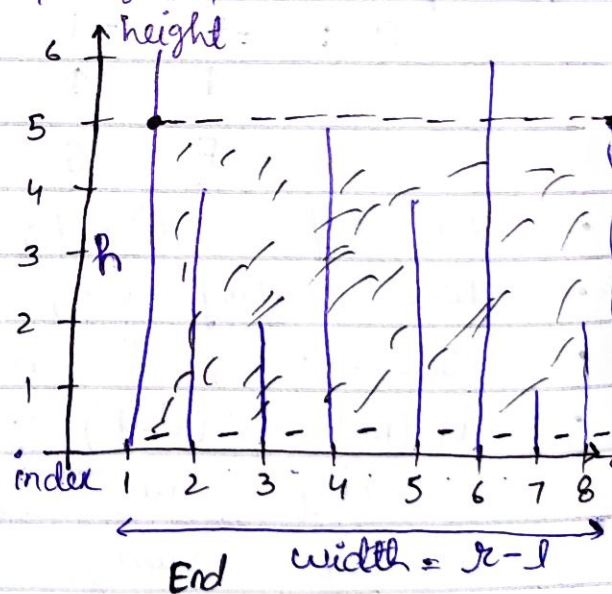 height
6
5
4
3 h
2
1
index 1 2 3 4 5 6 7 8
width = r - l
End